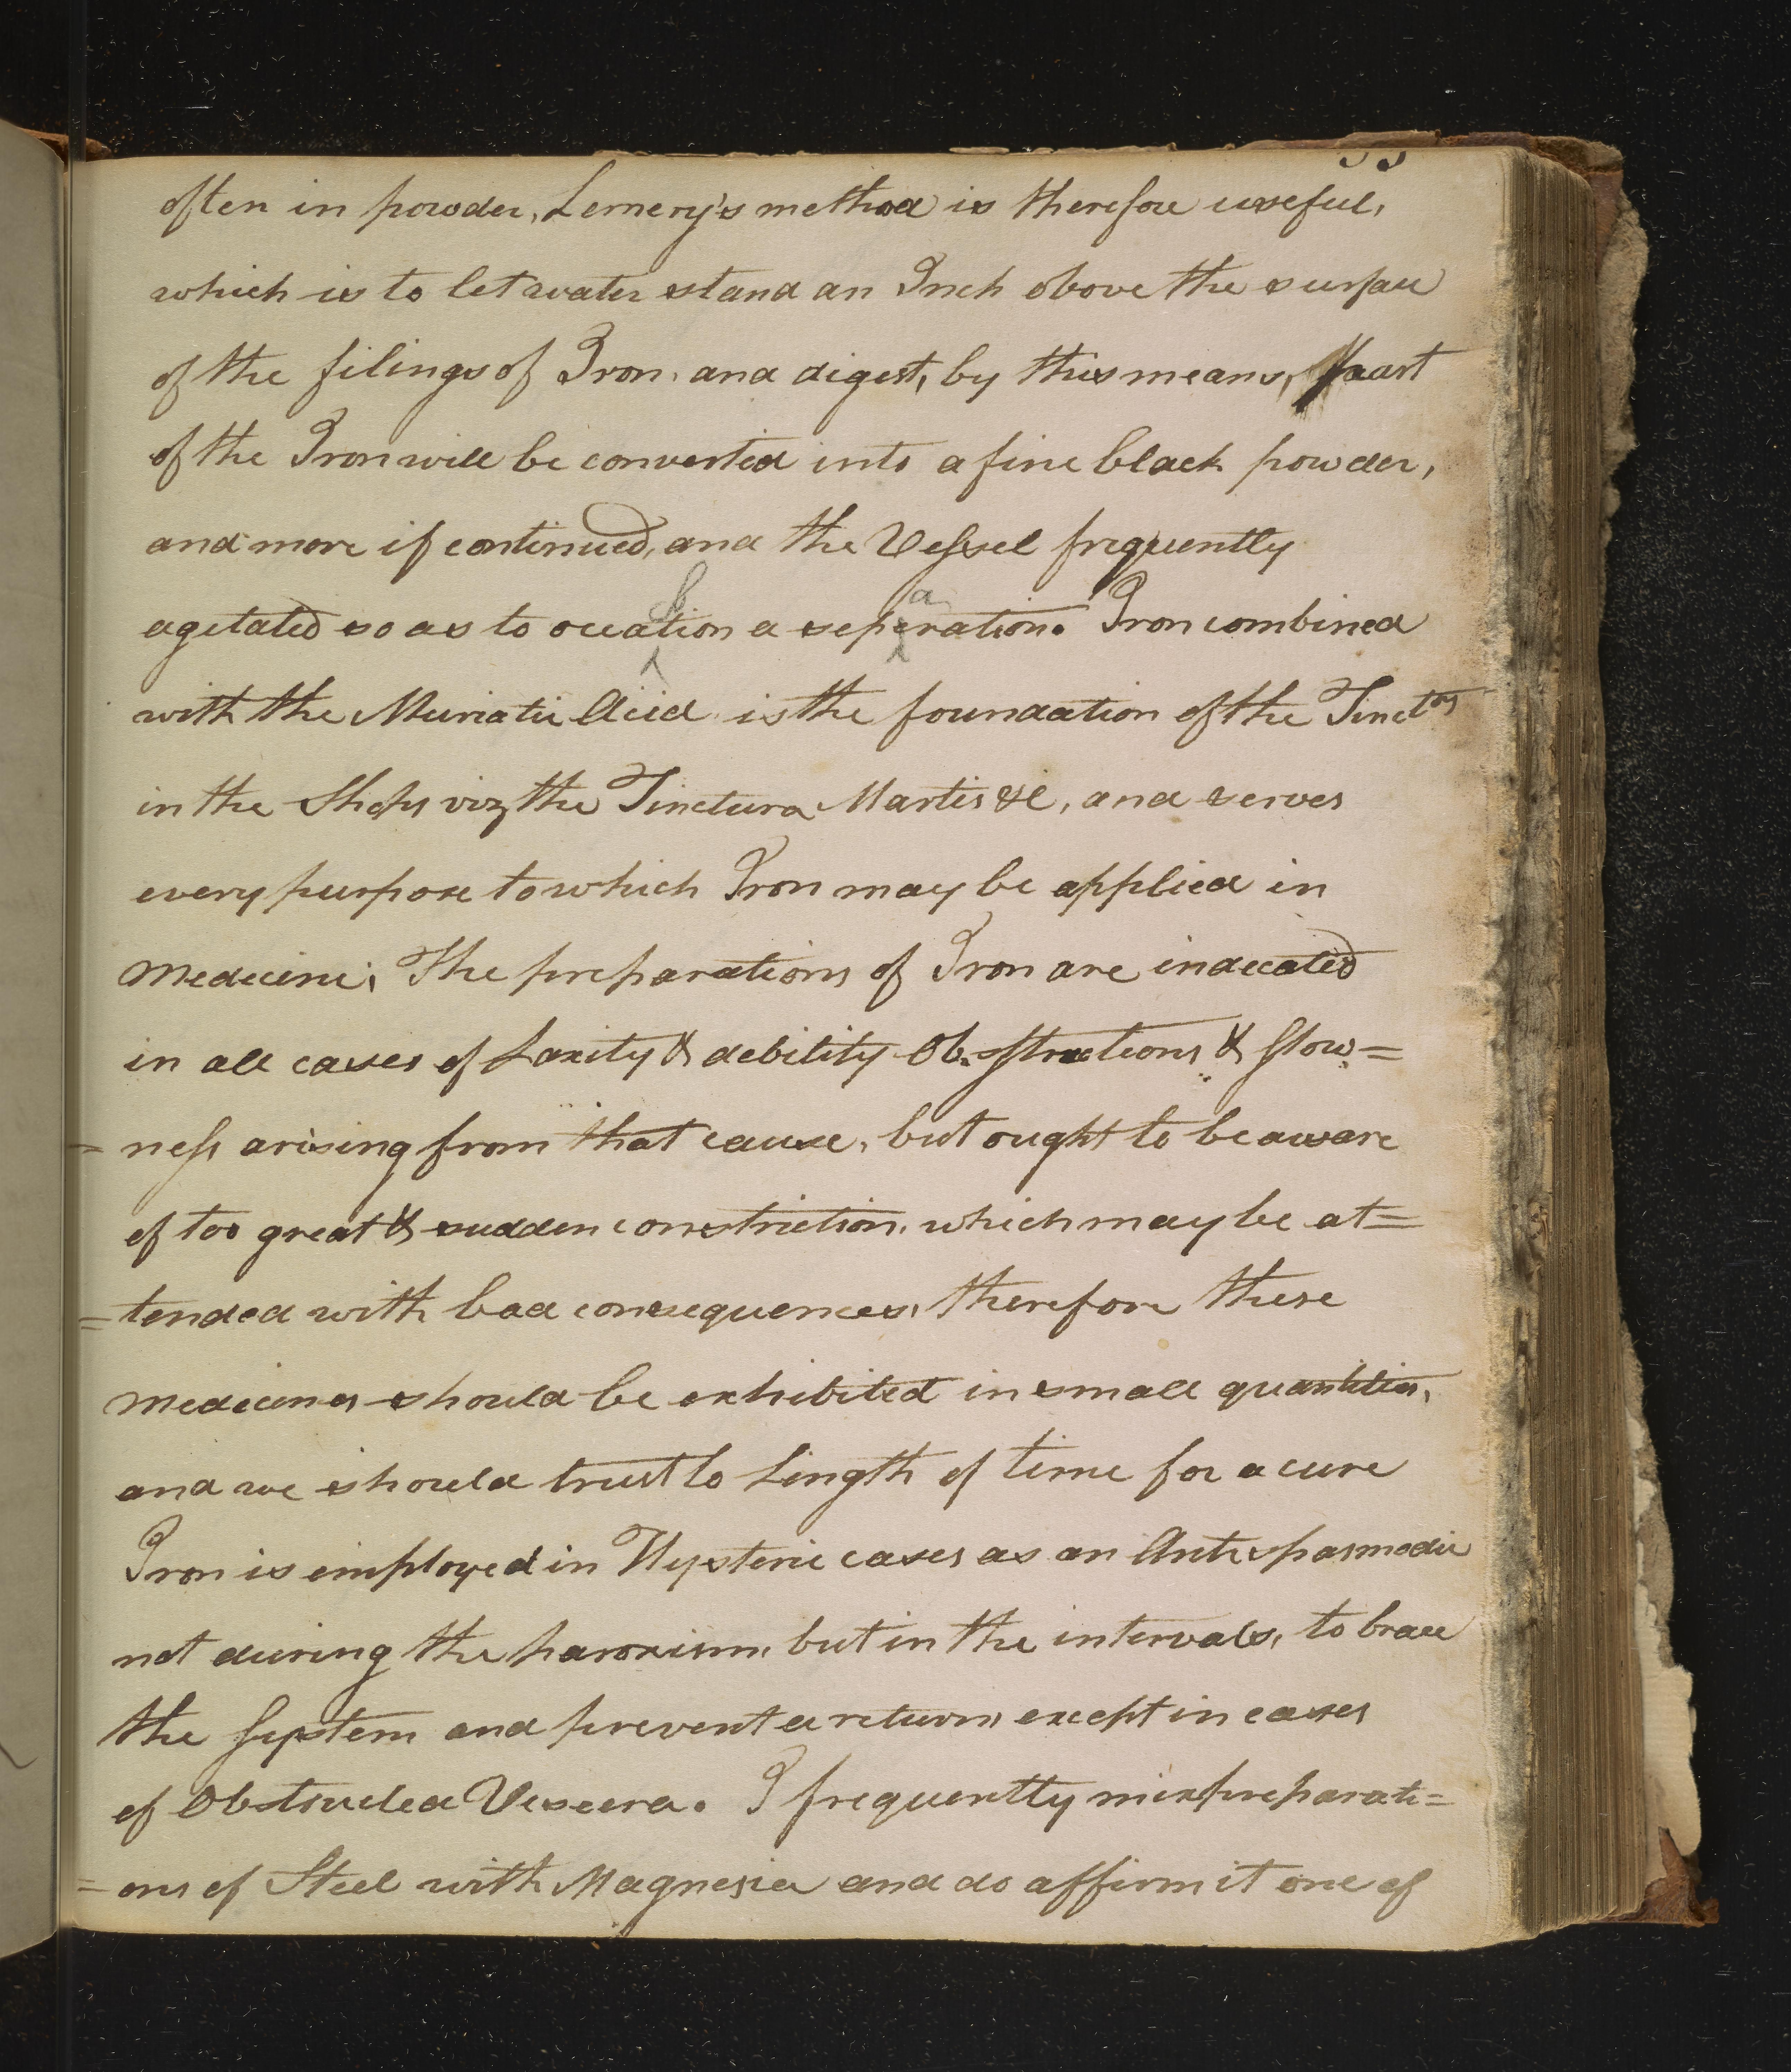 often in powder, Lemery's method is therefore useful,
which is to let water stand an Inch above the surface
of the filings of Iron, and digest, by this means, part
of the Iron will be converted into a fine black powder,
and more if continued, and the Vessel frequently
agetated so as to occation a seperation. Iron combined
with the Muriatic Acid is the foundation of the Tinct
in the Shops viz the Tinctura Martis &c, and serves
every purpose to which Iron may be applied in
Medecine; The preparations of Iron are indecated
in all cases of Laxity & debility Obstructions & Slow=
=ness arising from that cause, but ought to be aware
of too great & sudden constriction, which may be at=
=tended with bad consequences, therefore these
Medecines should be exhibited in small quantities,
and we should trust to Length of time for a cure
Iron is employed in Hysteric cases as an Antispasmodic
not during the paroxism, but in the intervals, to brace
the System and prevent a return, except in cases
of Obstructed Viscera. I frequently mix preparati=
=ons of Steel with Magnesia and do affirm it one of